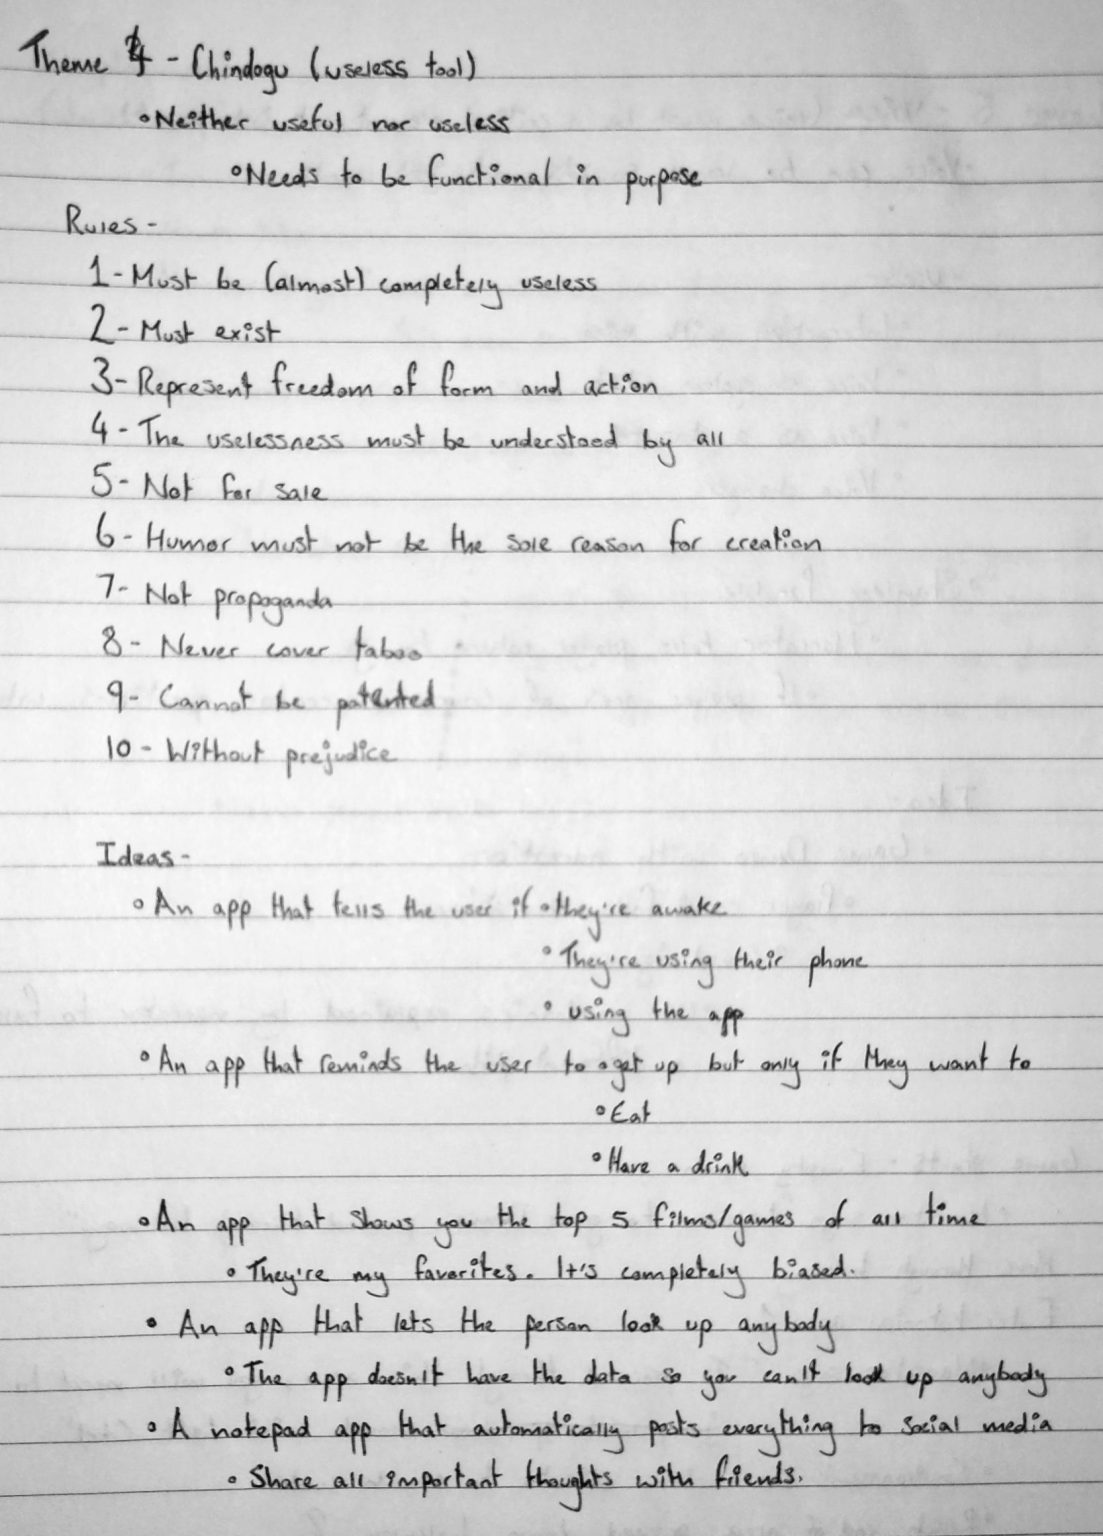 Theme 4 - Chindogu (useless tool)
• Neither useful nor useless
• Needs to be functional in purpose
Rules -
1 - Must be (almost) completely useless
2 - Must exist
3 - Represent freedom of form and action
4 - The uselessness must be understood by all
5 - Not for sale
6 - Humor must not be the sole reason for creation
7 - Not propoganda
8 - Never cover taboo
9 - Cannot be patented
10 - Without prejudice
Ideas -
• An app that tells the user if • they're awake
• They're using their phone
• using the app
• An app that reminds the user to • get up but only if they want to
• Eat
• Have a drink
• An app that shows you the top 5 films/games of all time
• They're my favorites. It's completely biased.
• An app that lets the person look up anybody
• The app doesn't have the data so you can't look up anybody
• A notepad app that automatically posts everything to social media
• Share all important thoughts with friends.